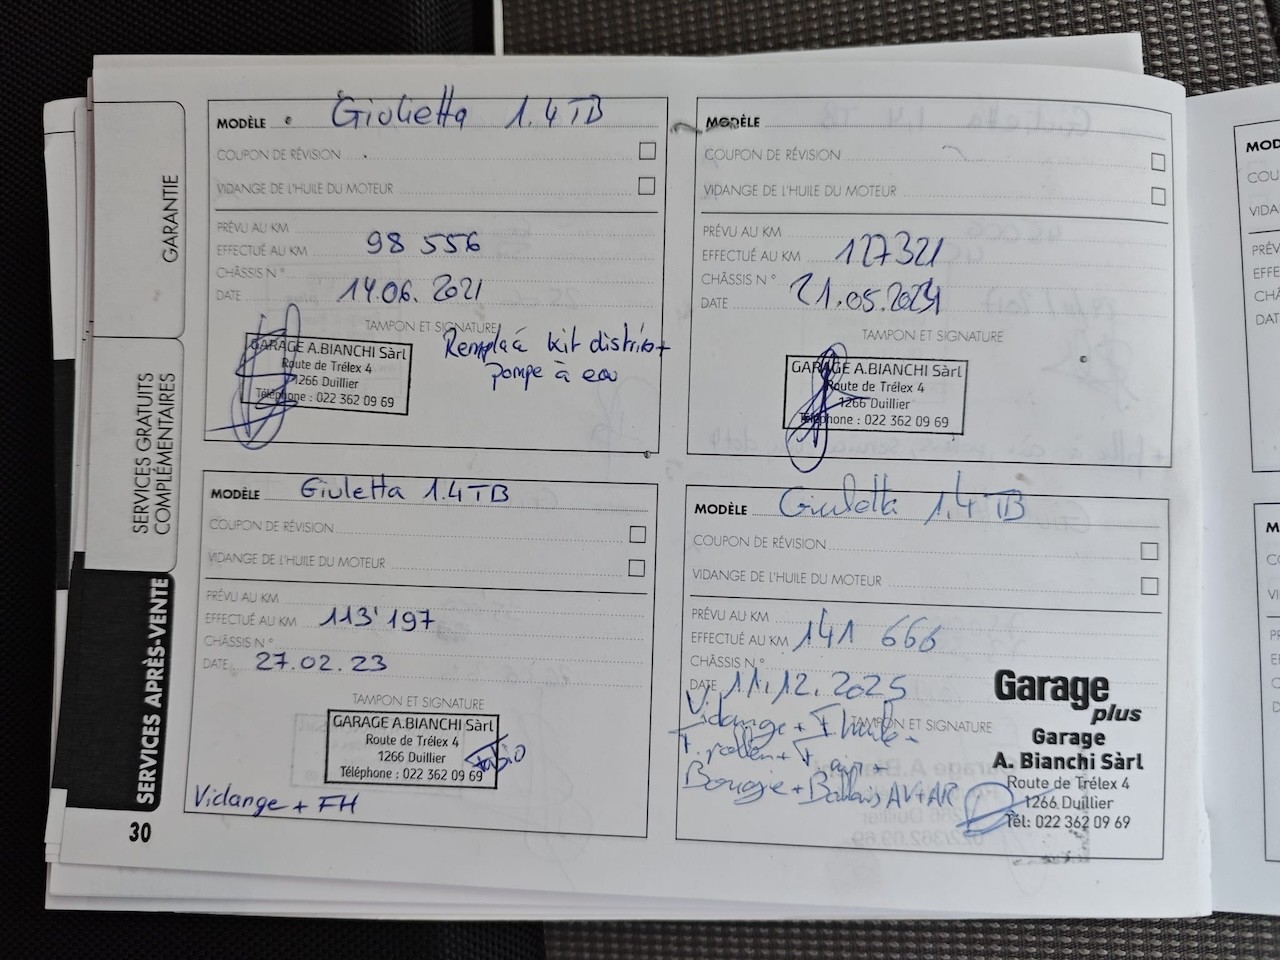 GARANTIE
SERVICES GRATUITS
COMPLÉMENTAIRES
SERVICES APRÈS-VENTE
30
MODÈLE Giulietta 1.4 TB
COUPON DE RÉVISION
VIDANGE DE L'HUILE DU MOTEUR
PRÉVU AU KM
EFFECTUÉ AU KM 98 556
CHÂSSIS N°
DATE 14.06.2021
TAMPON ET SIGNATURE
GARAGE A.BIANCHI Sàrl
Route de Trélex 4
1266 Duillier
Téléphone : 022 362 09 69
Remplacé kit distrib +
pompe à eau
MODÈLE Giuletta 1.4 TB
COUPON DE RÉVISION
VIDANGE DE L'HUILE DU MOTEUR
PRÉVU AU KM
EFFECTUÉ AU KM 113'197
CHÂSSIS N°
DATE 27.02.23
TAMPON ET SIGNATURE
GARAGE A.BIANCHI Sàrl
Route de Trélex 4
1266 Duillier
Téléphone : 022 362 09 69
Vidange + FH
MODÈLE
COUPON DE RÉVISION
VIDANGE DE L'HUILE DU MOTEUR
PRÉVU AU KM
EFFECTUÉ AU KM 127321
CHÂSSIS N°
DATE 21.05.2024
TAMPON ET SIGNATURE
GARAGE A.BIANCHI Sàrl
Route de Trélex 4
1266 Duillier
Téléphone : 022 362 09 69
MODÈLE Giuletta 1.4 TB
COUPON DE RÉVISION
VIDANGE DE L'HUILE DU MOTEUR
PRÉVU AU KM
EFFECTUÉ AU KM 141 666
CHÂSSIS N°
DATE 11.12.2025
TAMPON ET SIGNATURE
Vidange + F. huile +
F. pollen + F. air +
Bougie + Balais AV+AR
Garage
plus
Garage
A. Bianchi Sàrl
Route de Trélex 4
1266 Duillier
Tél: 022 362 09 69